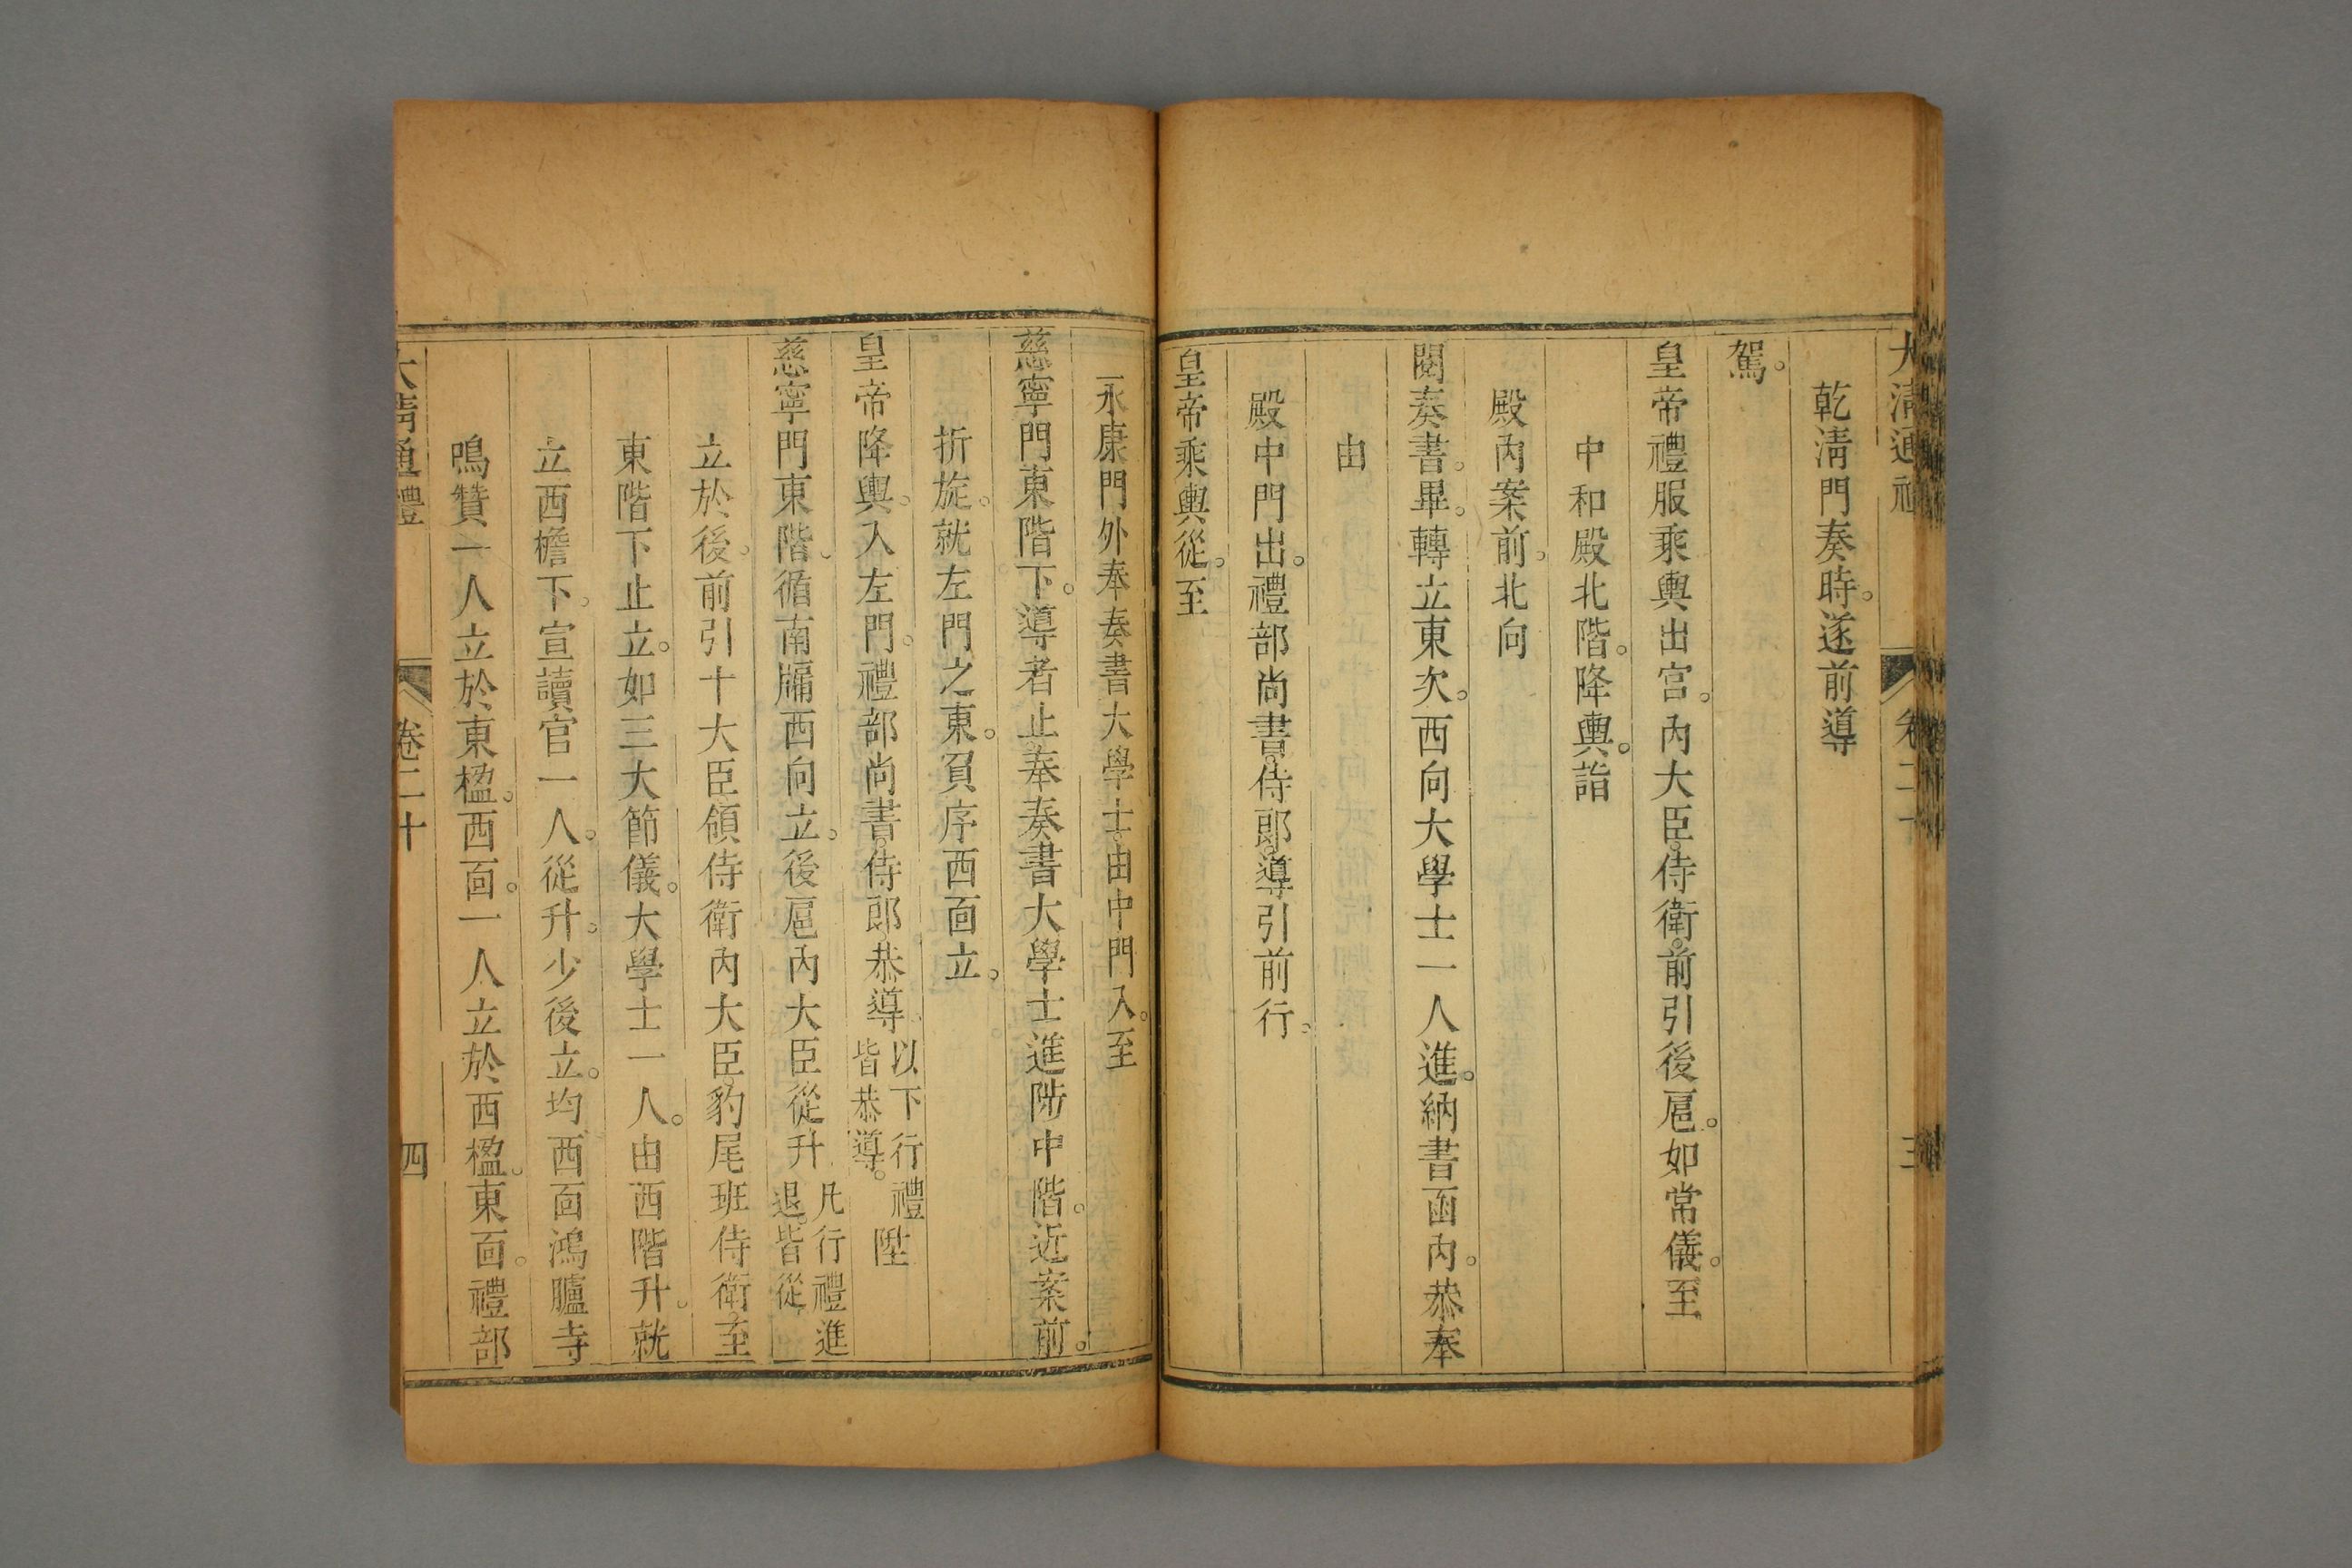 大清通禮 卷二十 三
乾淸門奏時。遂前導
駕。
皇帝禮服乘輿出宮。內大臣。侍衛。前引後扈。如常儀。至
中和殿北階。降輿。詣
殿內案前。北向
閱奏書。畢。轉立東次。西向大學士一人進。納書函內。恭奉
由
殿中門出。禮部尚書。侍郎。導引前行。
皇帝乘輿從。至
永康門外奉奏書大學士。由中門入。至
慈寧門東階下。導者止奉奏書大學士進陟中階。近案前。
折旋。就左門之東。負序西面立。
皇帝降輿。入左門。禮部尚書。侍郎。恭導以下行禮皆恭導。陞
慈寧門東階。循南牖西向立。後扈內大臣從升凡行禮進退。皆從。
立於後。前引十大臣領侍衛內大臣。豹尾班侍衛。至
東階下止立。如三大節儀。大學士一人。由西階升。就
立西檐下。宣讀官一人。從升。少後立。均西面鴻臚寺
鳴贊一人立於東楹。西面。一人立於西楹。東面。禮部
大淸通禮 卷二十 四